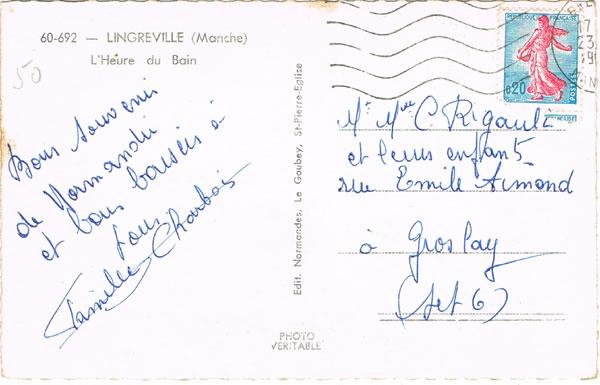 60-692 — LINGREVILLE (Manche)
L'Heure du Bain
50
Bons souvenir
de Normandie
et bons baisers à
tous
Famille
Edit. Normandes, Le Goubey, St-Pierre-Eglise
PHOTO
VERITABLE
REPUBLIQUE FRANÇAISE
0,20
POSTES
17
23
Mr Mme C Rigault
et leurs enfants
rue Emile Aimond
à Groslay
(Set 6)